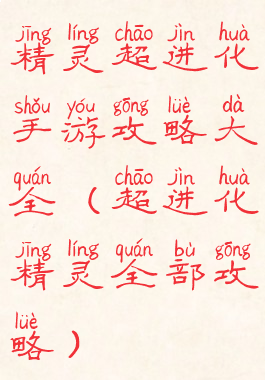 jīng líng chāo jìn huà
精灵超进化
shǒu yóu gōng lüè dà
手游攻略大
quán chāo jìn huà
全（超进化
jīng líng quán bù gōng
精灵全部攻
lüè
略）